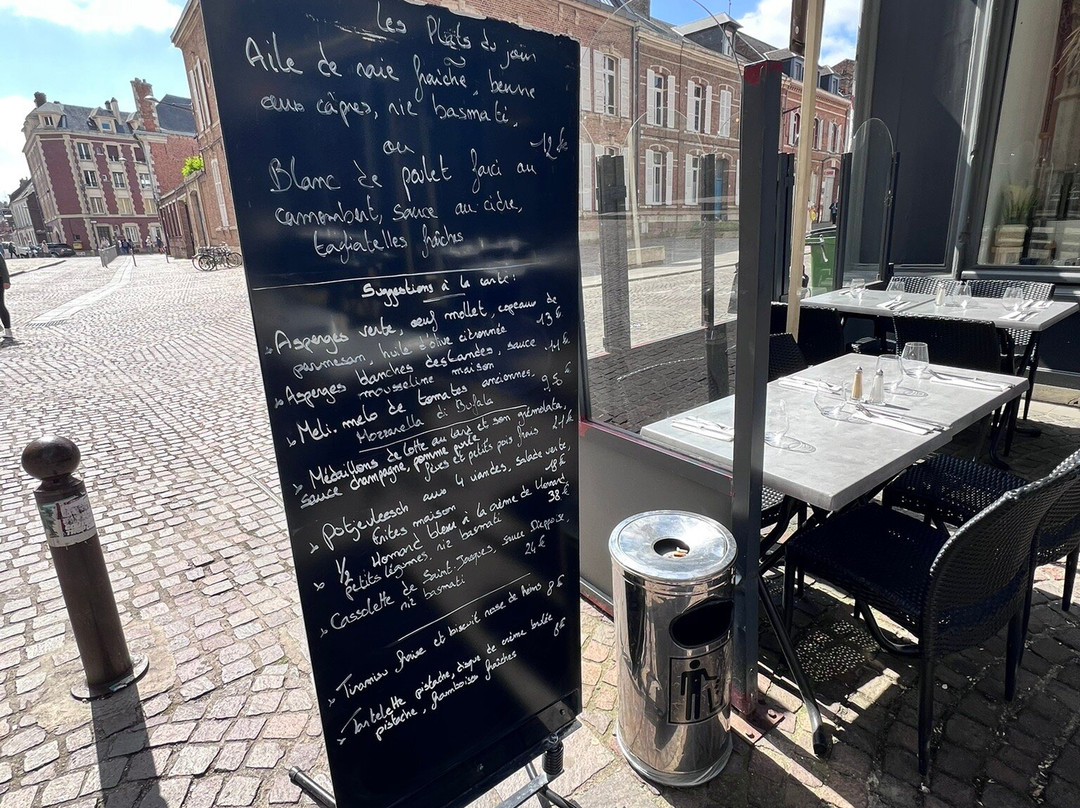 Les Plats du jour
Aile de raie fraîche, beurre
aux câpres, riz basmati.
ou 12€
Blanc de poulet farci au
camembert, sauce au cidre,
tagliatelles fraîches
Suggestions à la carte :
Asperges verte, oeuf mollet, copeaux de
parmesan, huile d'olive citronnée 13€
Asperges blanches des Landes, sauce
mousseline maison 11€
Méli. melo de tomates anciennes.
Mozzarella di Bufala 9,50€
Médaillons de lotte au lard et son grémolata,
sauce champagne, pomme purée
fèves et petits pois frais 21€
Potjevleesch aux 4 viandes, salade verte
frites maison 18€
1/2 Homard bleu à la crème de Homard
petits légumes, riz basmati 38€
Cassolette de Saint-Jacques, sauce Dieppoise,
riz basmati 24€
Tiramisu fraise et biscuit rose de Reims 8€
Tartelette pistache, disque de crème brûlée
pistache, framboises fraîches 8€